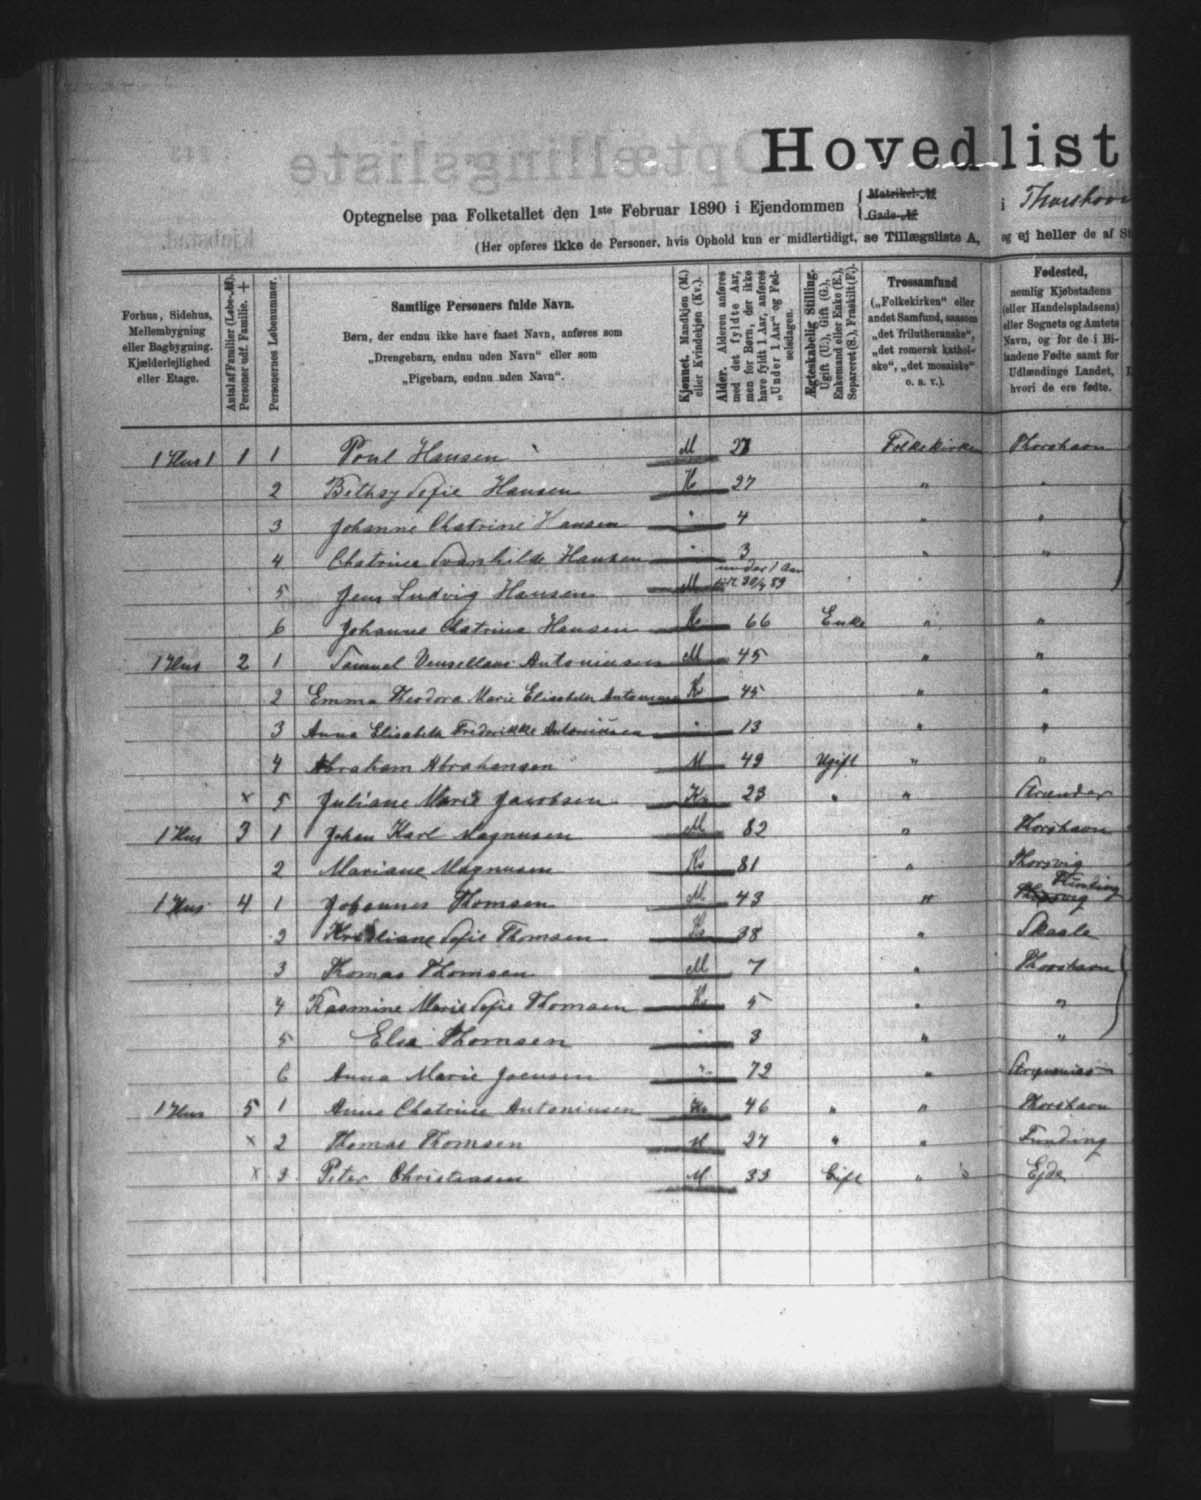 Hovedlist
Optegnelse paa Folketallet den 1ste Februar 1890 i Ejendommen { Matrikel-№ Gade-№ i Thorshavn
(Her opføres ikke de Personer, hvis Ophold kun er midlertidigt, se Tillægsliste A, og ej heller de af St
Forhus, Sidehus, Mellembygning eller Bagbygning. Kjælderlejlighed eller Etage.
Antal af Familier (Løbe-№). Personer udf. Familie. +
Personernes Løbenummer.
Samtlige Personers fulde Navn.
Børn, der endnu ikke have faaet Navn, anføres som
„Drengebarn, endnu uden Navn“ eller som
„Pigebarn, endnu uden Navn“.
Kjønnet. Mandkjøn (M.) eller Kvindekjøn (Kv.).
Alder. Alderen anføres med det fyldte Aar, men for Børn, der ikke have fyldt 1 Aar, anføres „Under 1 Aar“ og Fødselsdagen.
Ægteskabelig Stilling. Ugift (U.), Gift (G.), Enkemand eller Enke (E.), Separeret (S.), Fraskilt (F.).
Trossamfund („Folkekirken“ eller andet Samfund, saasom „det frilutheranske“, „det romersk katholske“, „det mosaiske“ o. s. v.).
Fødested, nemlig Kjøbstadens (eller Handelspladsens) eller Sognets og Amtets Navn, og for de i Bilandene Fødte samt for Udlændinge Landet, hvori de ere fødte.
1 Hus 1 1 1 Poul Hansen M Folkekirken Thorshavn
2 Bethsy Sofie Hansen K 27 " "
3 Johanne Chatrine Hansen " 4 " "
4 Chatrine Svanhilde Hansen " 3 " "
5 Jens Ludvig Hansen M under 1 Aar
6 Johanne Chatrine Hansen K 66 Enke " "
1 Hus 2 1 Samuel Antoniussen M 45 " "
2 Emma Theodora Marie Elisabeth Antoniussen K 45 " "
3 Anna Elisabeth Frederikke Antoniussen " 13 " "
4 Abraham Abrahamsen M 49 Ugift " "
x 5 Juliane Marie Jacobsen Kv 23 " "
1 Hus 3 1 Johan Karl Magnusen M 82 " Thorshavn
2 Mariane Magnusen Kv 81 " Thorsvig
1 Hus 4 1 Johannes Thomsen M 43 "
2 Sofie Thomsen Kv 38 " Skaale
3 Thomas Thomsen M 7 " Thorshavn
4 Rasmine Marie Sofie Thomsen Kv 5 " "
5 Elia Thomsen " 3 " "
6 Anna Marie Joensen " 72 "
1 Hus 5 1 Anna Chatrine Antoniusen Kv 46 " " Thorshavn
x 2 Thomas Thomsen M 27 " " Funding
x 3 Peter Christiansen M 33 Gift " Ejde